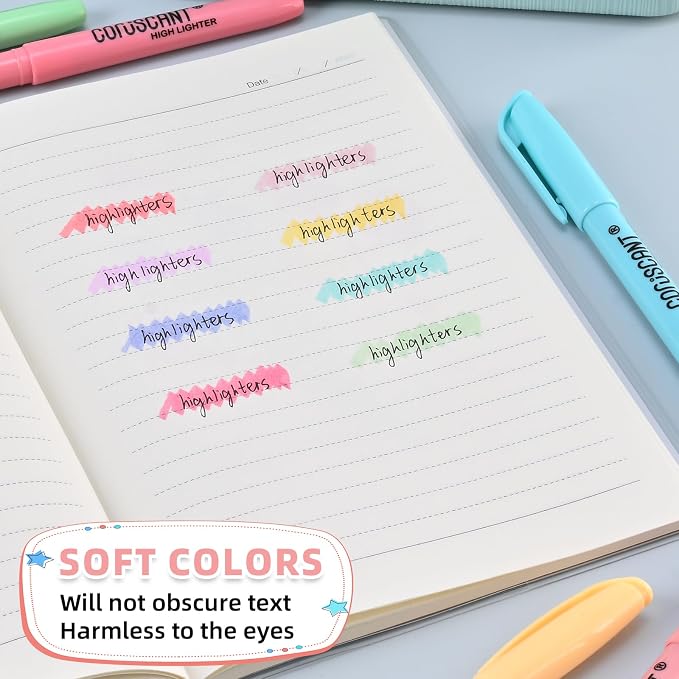 coruSCANT®
HIGH LIGHTER
Date / /
highlighters
highlighters
highlighters
highlighters
highlighters
highlighters
highlighters
highlighters
highlighters
coruSCANT®
SOFT COLORS
Will not obscure text
Harmless to the eyes
T®